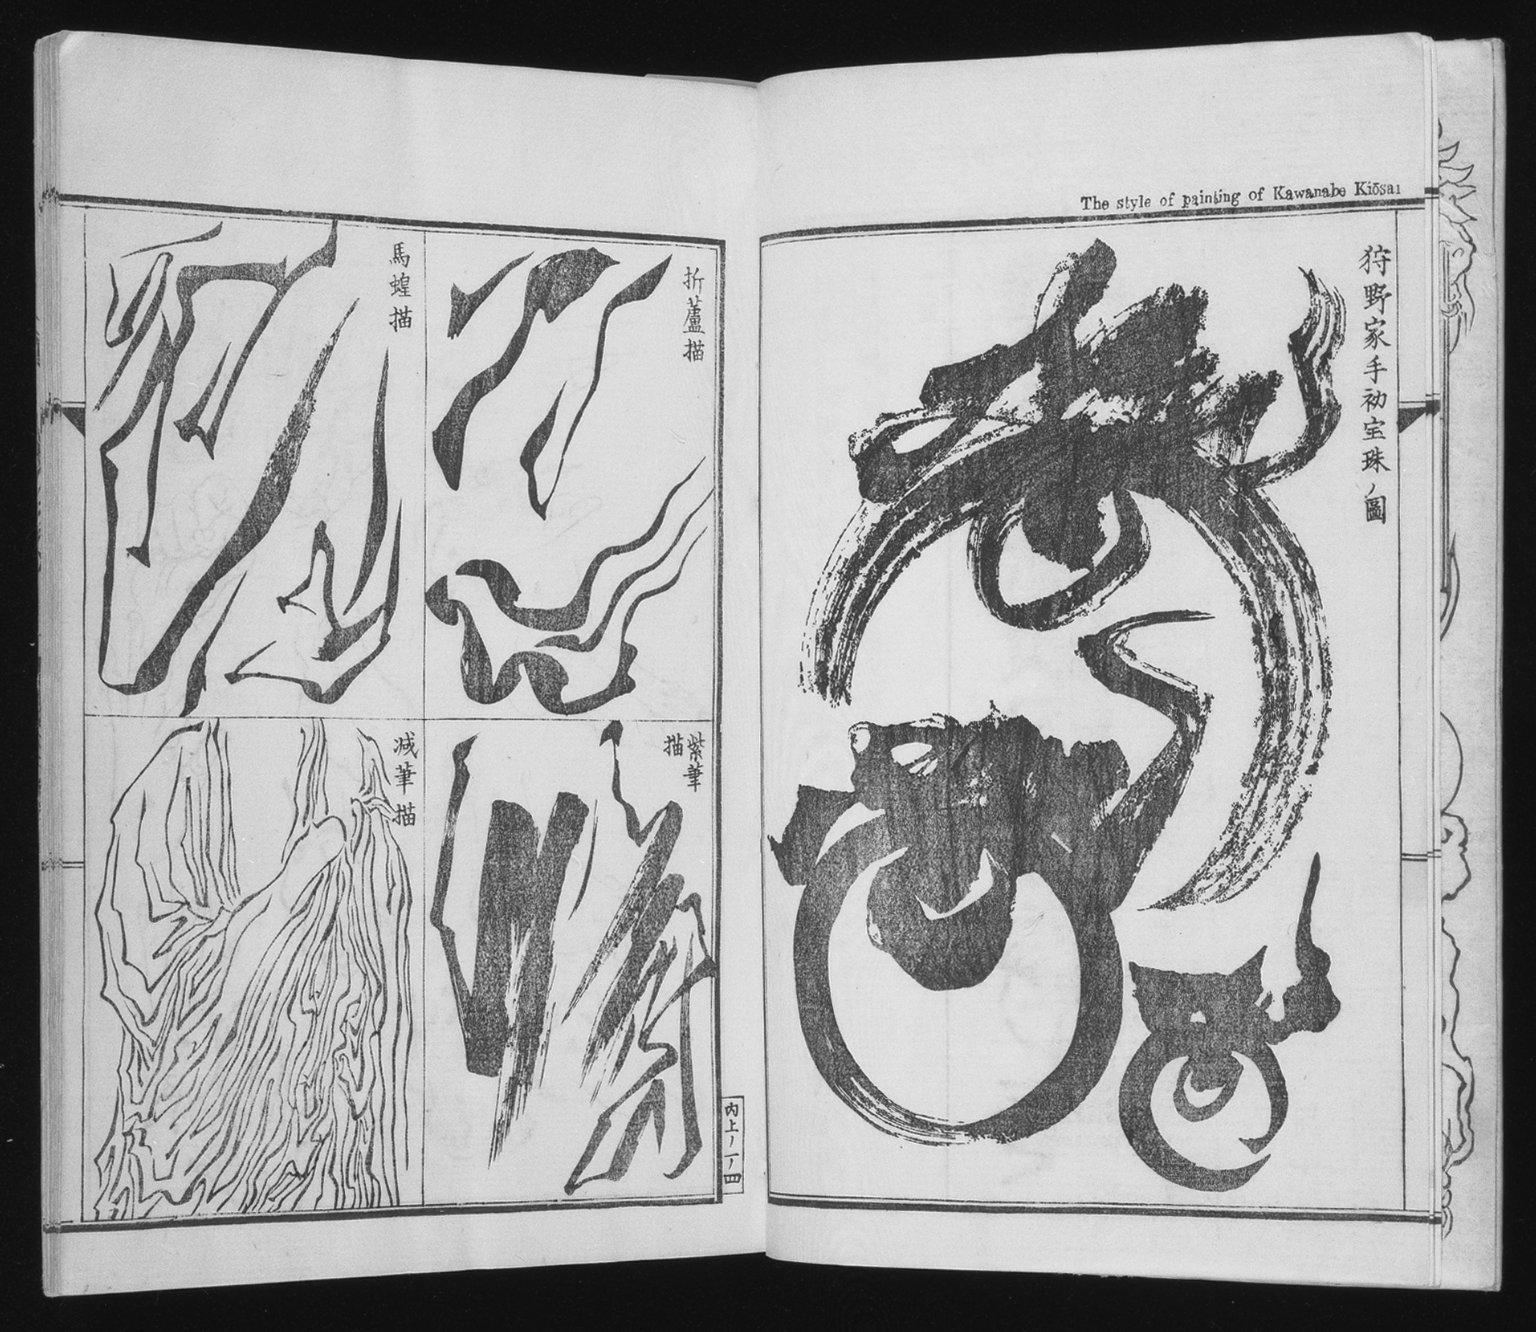 The style of painting of Kawanabe Kiōsai
狩野家手初宝珠ノ圖
折蘆描
馬蝗描
柴筆
描
减筆描
内上ノ一ノ四